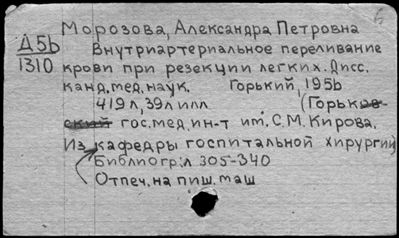 Морозова, Александра Петровна
Д5b
1310
Внутриартериальное переливание
крови при резекции легких. Дисс.
канд. мед. наук. Горький, 195b
419 л, 39 л илл (Горьков-
ский гос. мед. ин-т им. С. М. Кирова.
Из кафедры госпитальной хирургии)
Библиогр: л 305-340
Отпеч. на пиш. маш